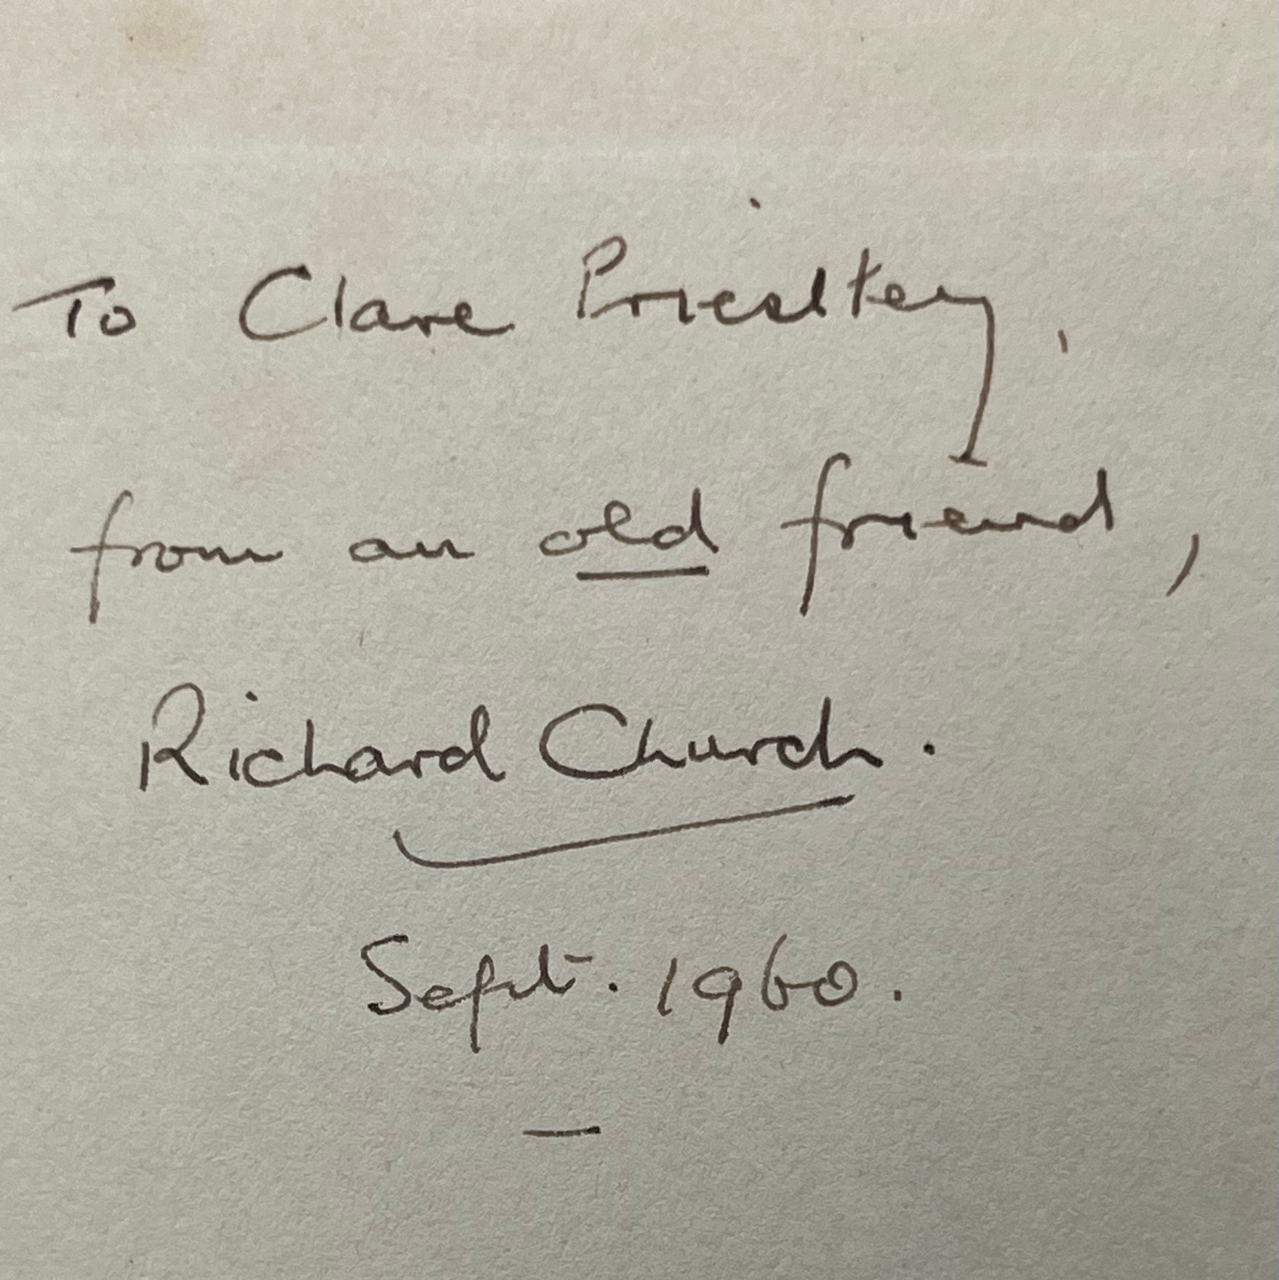 To Clare Priestley,
from an old friend,
Richard Church.
Sept. 1960.
—